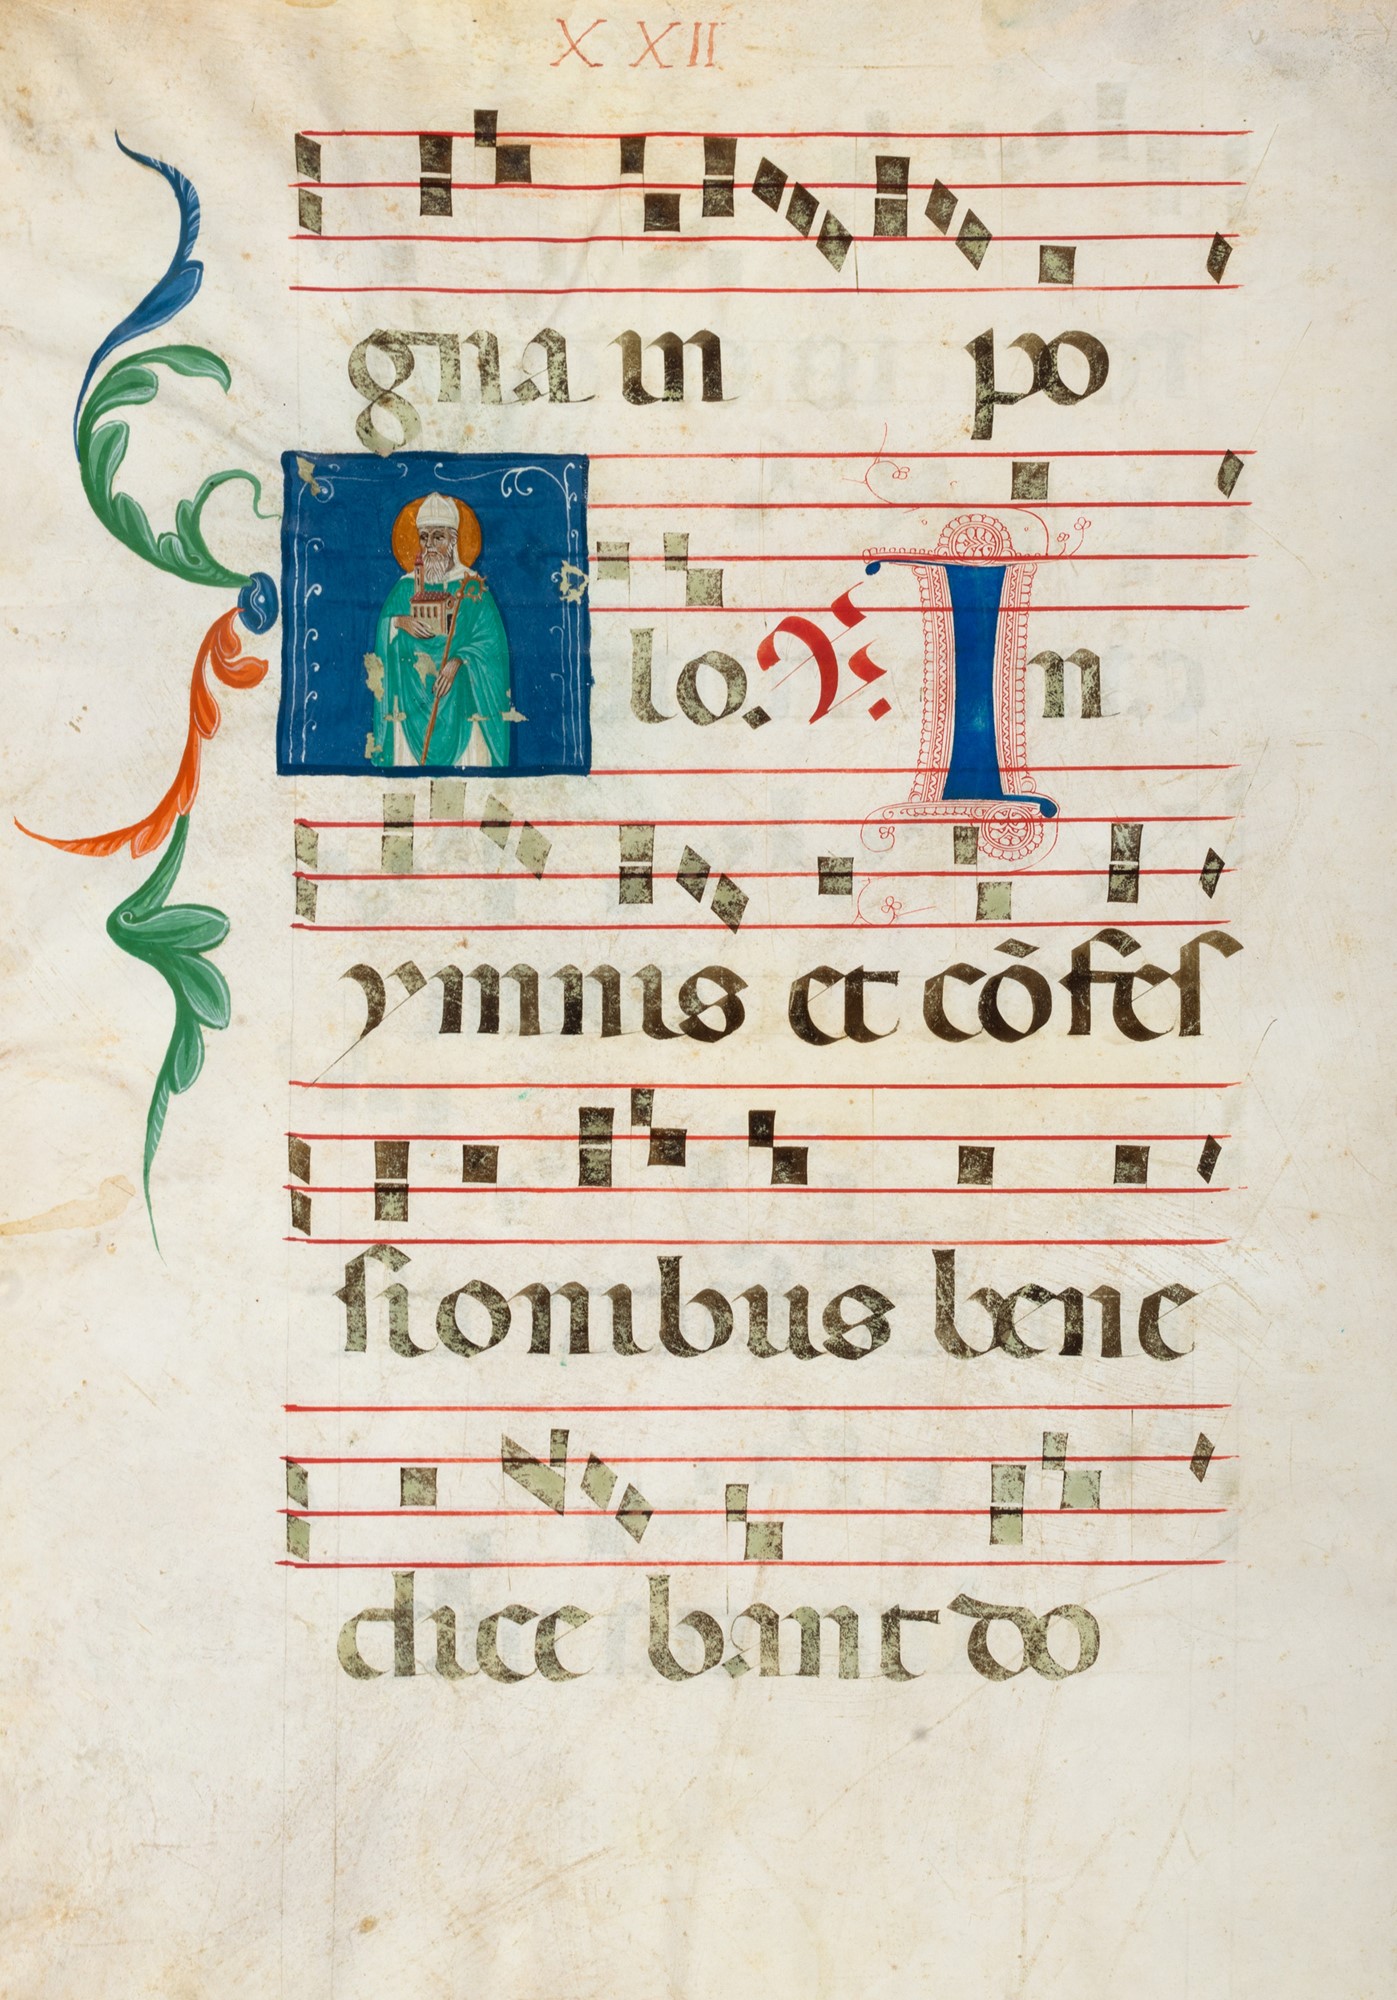 XXII
gna in po
lo. ℣. In
ymnis et cōfeſ
ſionibus bene
dice bant do